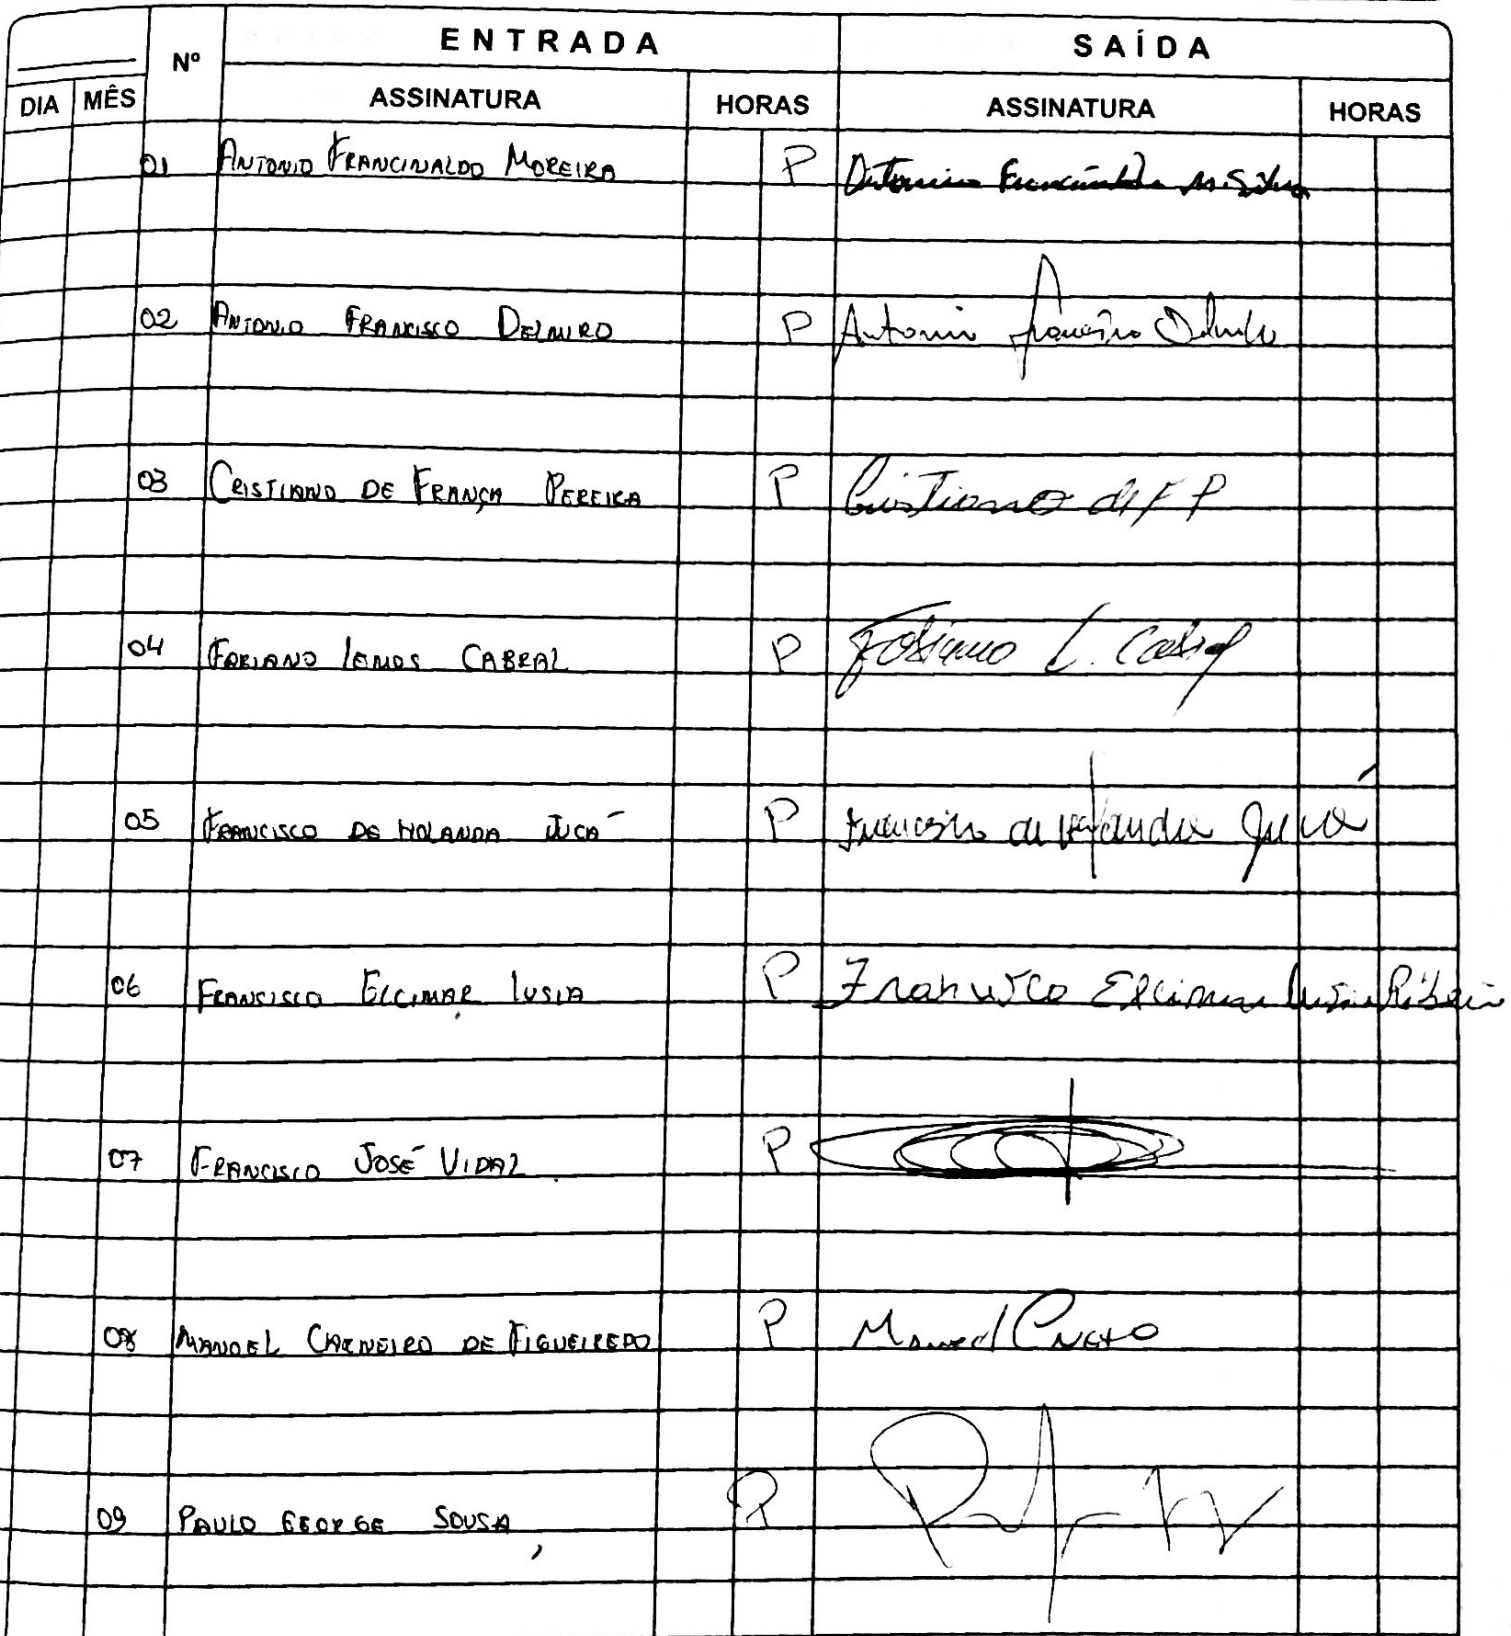 ENTRADA SAÍDA
Nº
DIA MÊS ASSINATURA HORAS ASSINATURA HORAS
01 ANTONIO FRANCINALDO MOREIRA P Antonio M. Silva
02 ANTONIO FRANCISCO DELMIRO P Antonio Francisco
03 CRISTIANO DE FRANÇA PEREIRA P Cristiano de F P
04 FABIANO LEMOS CABRAL P Fabiano L. Cabral
05 FRANCISCO DE HOLANDA JUCÁ P Francisco de Holanda Jucá
06 FRANCISCO ELCIMAR LUSIA P Francisco Elcimar
07 FRANCISCO JOSÉ VIDAL P
08 MANOEL CARNEIRO DE FIGUEIREDO P Manoel
09 PAULO GEORGE SOUSA P